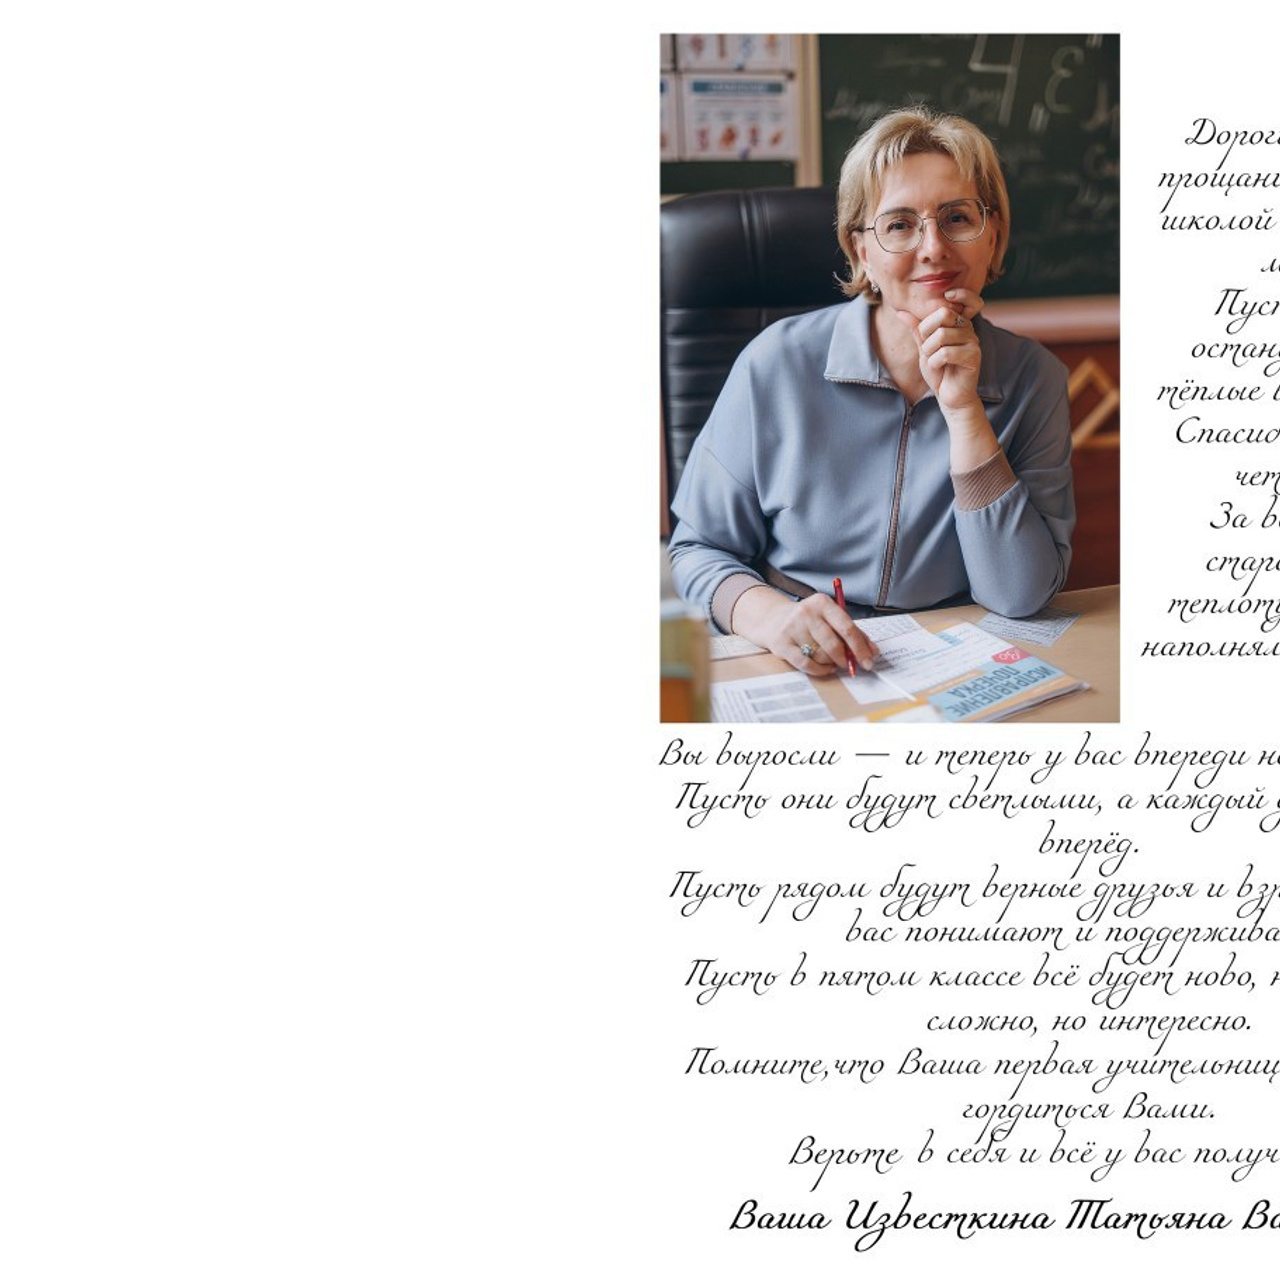 прощани
школой
Пуст
тёплые в
Спасиб
За в
наполнял
Вы выросли — и теперь у вас впереди но
Пусть они будут светлыми, а каждый д
вперёд.
Пусть рядом будут верные друзья и взр
вас понимают и поддержива
Пусть в пятом классе всё будет ново, н
сложно, но интересно.
Помните,что Ваша первая учительниц
гордиться Вами.
Верьте в себя и всё у вас получ
Ваша Известкина Татьяна Ва
ИСПРАВЛЕНИЕ
ПОЧЕРКА